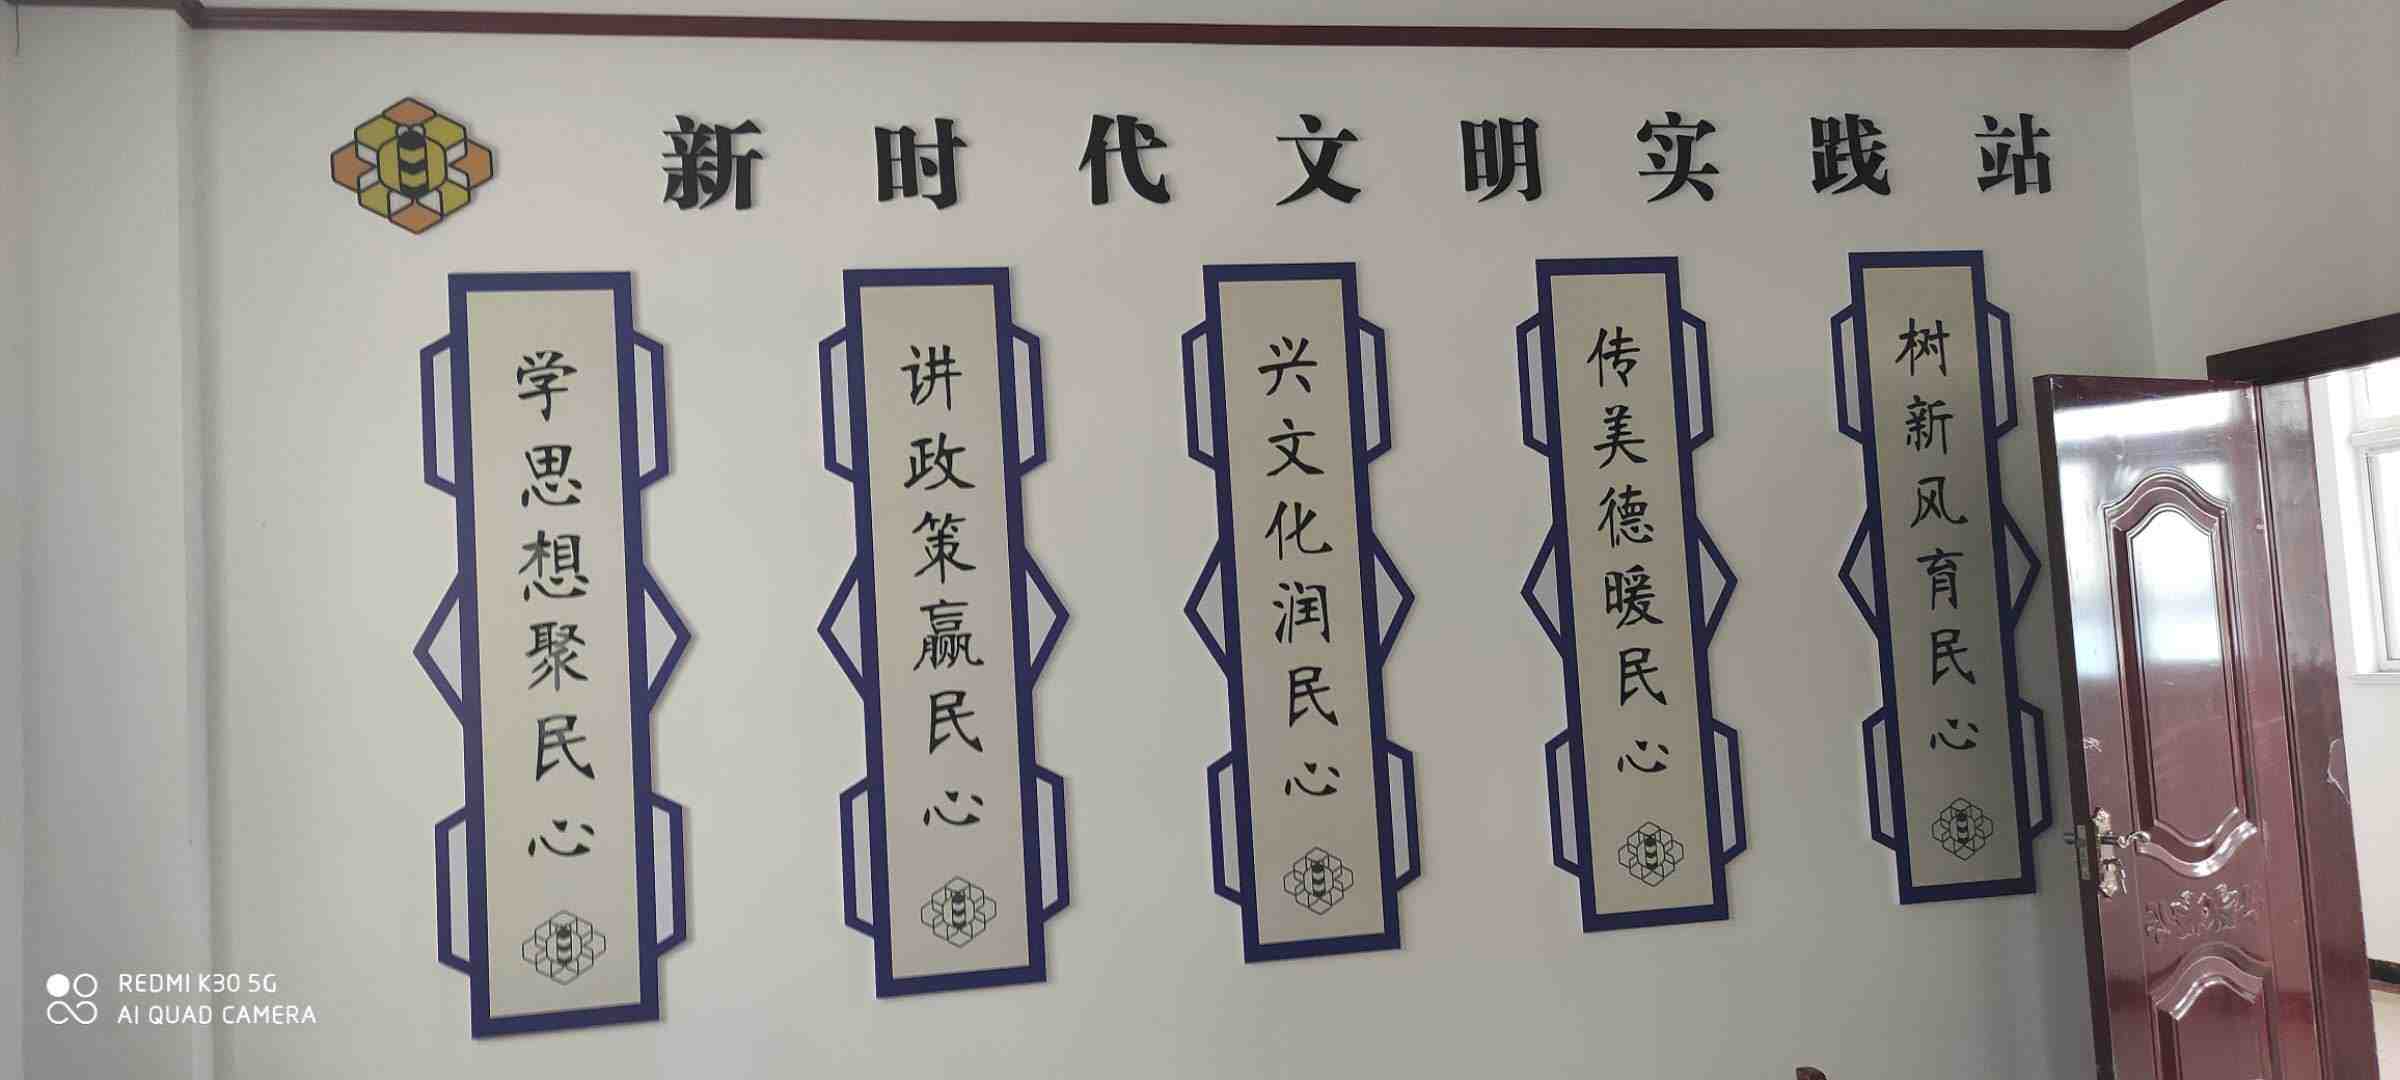 新时代文明实践站
学思想聚民心
讲政策赢民心
兴文化润民心
传美德暖民心
树新风育民心
REDMI K30 5G
AI QUAD CAMERA